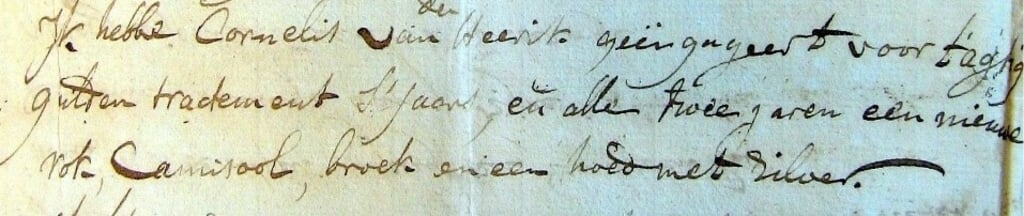 Ik hebbe Cornelis van den Heerik geëngageert voor tagtig
gulden tractement 's jaars, en alle twee jaren een nieuwe
rok, Camisool, broek en een hoed met zilver.